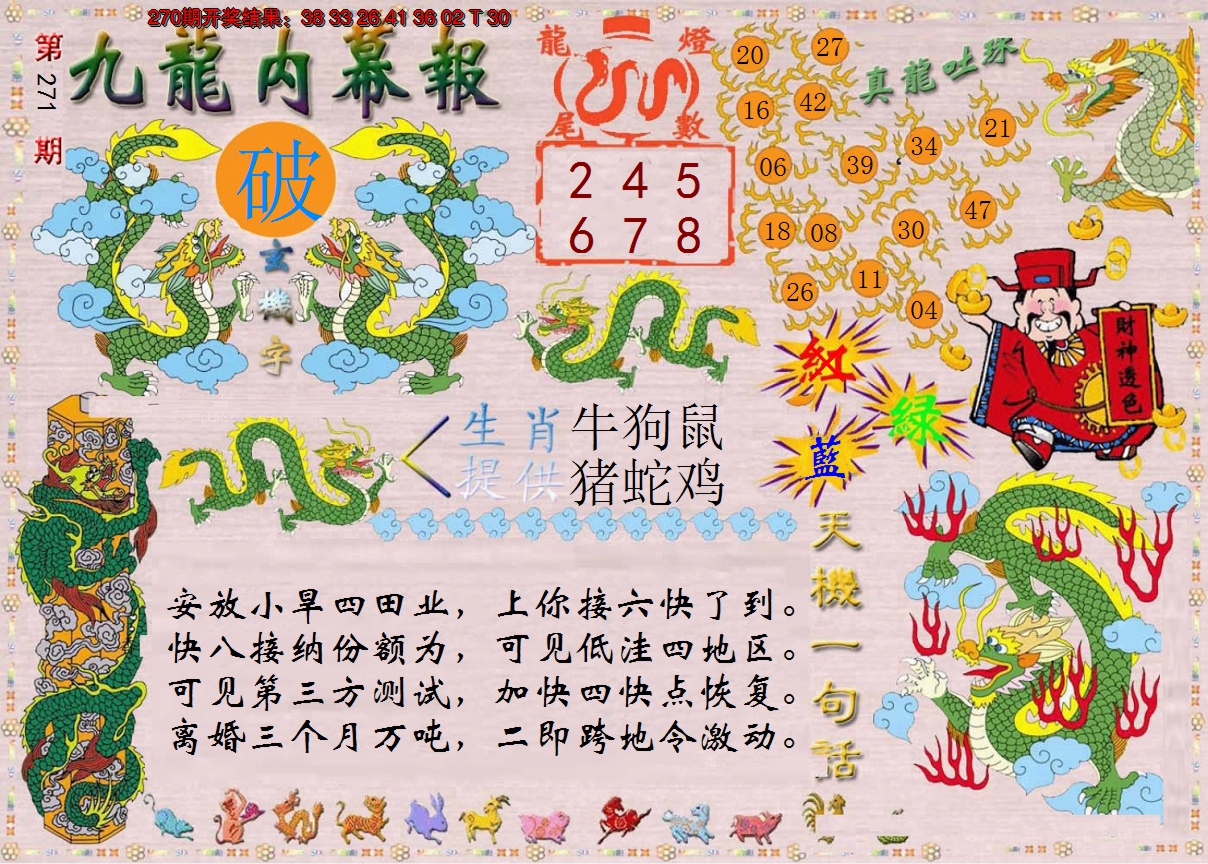 270期开奖结果：38 33 26 41 36 02 T 30
第271期
九龍内幕報
破
玄機字
龍燈
尾數
2 4 5
6 7 8
真龍吐珠
20 27
16 42
06 39 34 21
18 08 30 47
26 11 04
財神透色
紅
綠
藍
生肖 牛狗鼠
提供 猪蛇鸡
天機一句話
安放小旱四田业，上你接六快了到。
快八接纳份额为，可见低洼四地区。
可见第三方测试，加快四快点恢复。
离婚三个月万吨，二即跨地令激动。